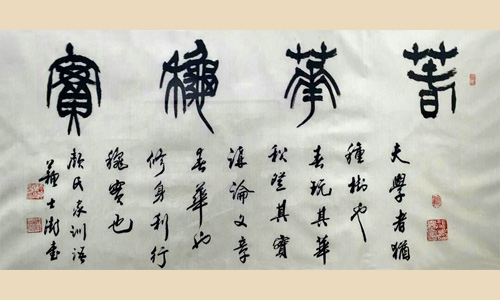 萅華穐實
夫學者猶
種樹也
春玩其華
秋登其實
講論文章
春華也
修身利行
穐實也
顏氏家訓語
蘇士澍書